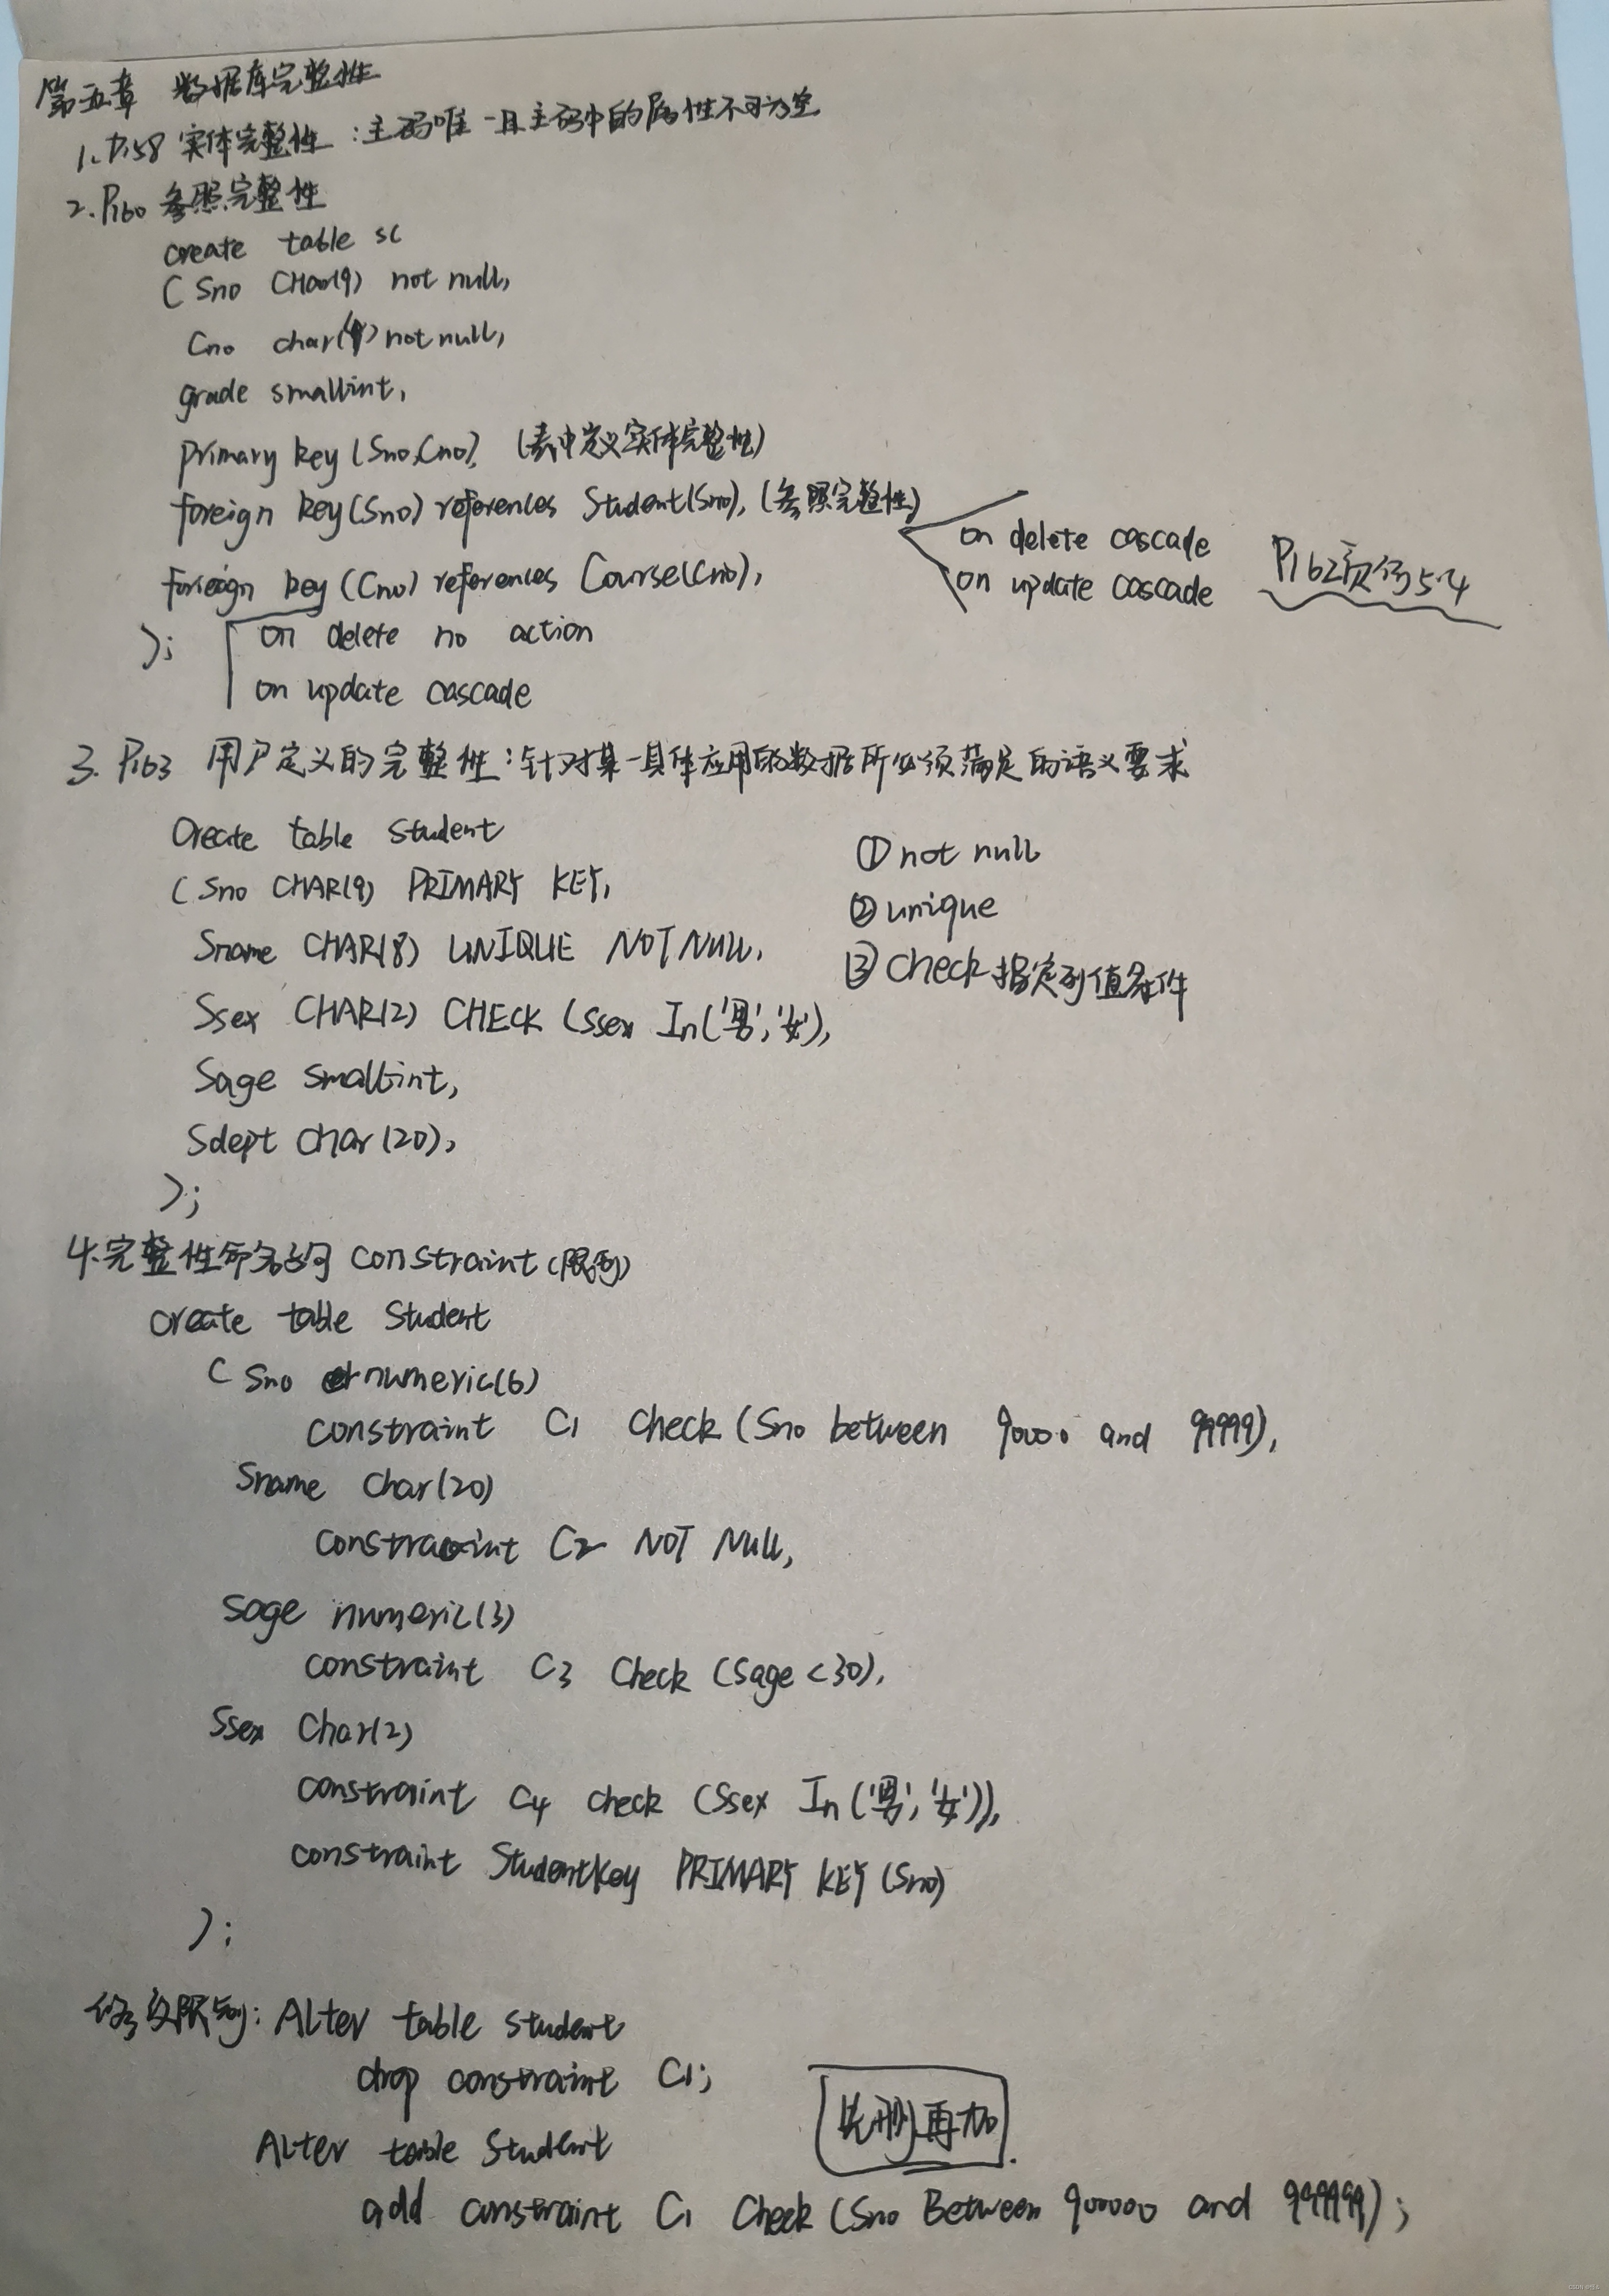 第五章 数据库完整性
1. P158 实体完整性：主码唯一且主码中的属性不可为空
2. P160 参照完整性
create table sc
( Sno CHar(9) not null,
Cno char(4) not null,
grade smallint,
primary key (Sno,Cno), (表中定义实体完整性)
foreign key(Sno) references Student(Sno), (参照完整性)
on delete cascade
on update cascade
P162页例5.4
foreign key (Cno) references Course(Cno),
on delete no action
);
on update cascade
3. P163 用户定义的完整性：针对某一具体应用的数据所必须满足的语义要求
Create table Student
( Sno CHAR(9) PRIMARY KEY,
Sname CHAR(8) UNIQUE NOT NULL,
Ssex CHAR(2) CHECK (Ssex In('男','女'),
Sage smallint,
Sdept char(20),
);
① not null
② unique
③ check 指定列值条件
4. 完整性命名子句 constraint (限制)
create table Student
( Sno numeric(6)
constraint C1 check (Sno between 90000 and 99999),
Sname char(20)
constraint C2 NOT NULL,
Sage numeric(3)
constraint C3 check (Sage < 30),
Ssex Char(2)
constraint C4 check (Ssex In ('男','女')),
constraint StudentKey PRIMARY KEY (Sno)
);
修改限制：Alter table student
drop constraint C1;
Alter table Student
add constraint C1 Check (Sno Between 900000 and 999999);
先删再加
CSDN